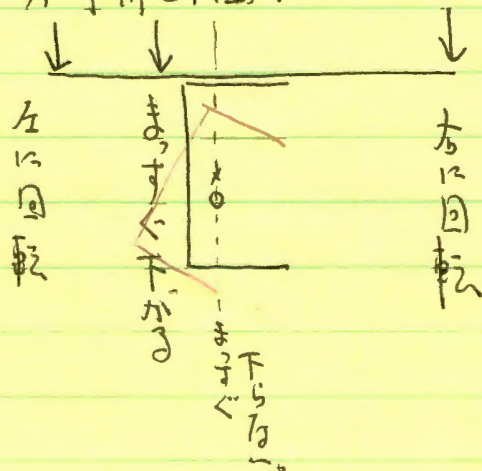 左に回転
まっすぐ下がる
まっすぐ
下らない。
右に回転